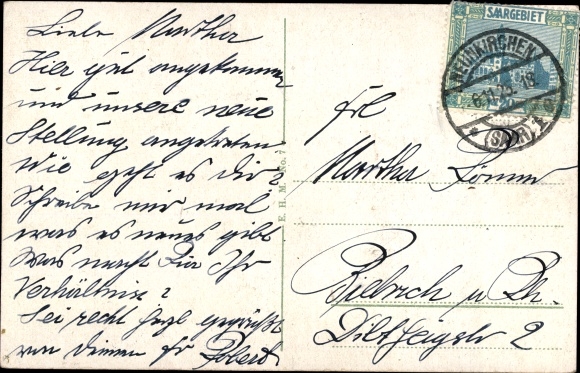 Liebe Marthar
Hier gut angekommen
und unsere neue
Stellung angetreten
Wie geht es dir?
Schreibe mir mal
was es neues gibt
Was macht Ihr
Verhältniss?
Sei recht herzl gegrüßt
von Deinem Fr Robert
E. H. M. No. 7
SAARGEBIET
NEUNKIRCHEN
6.11.25
(SAAR)
Frl
Marthar
a Rh.
2